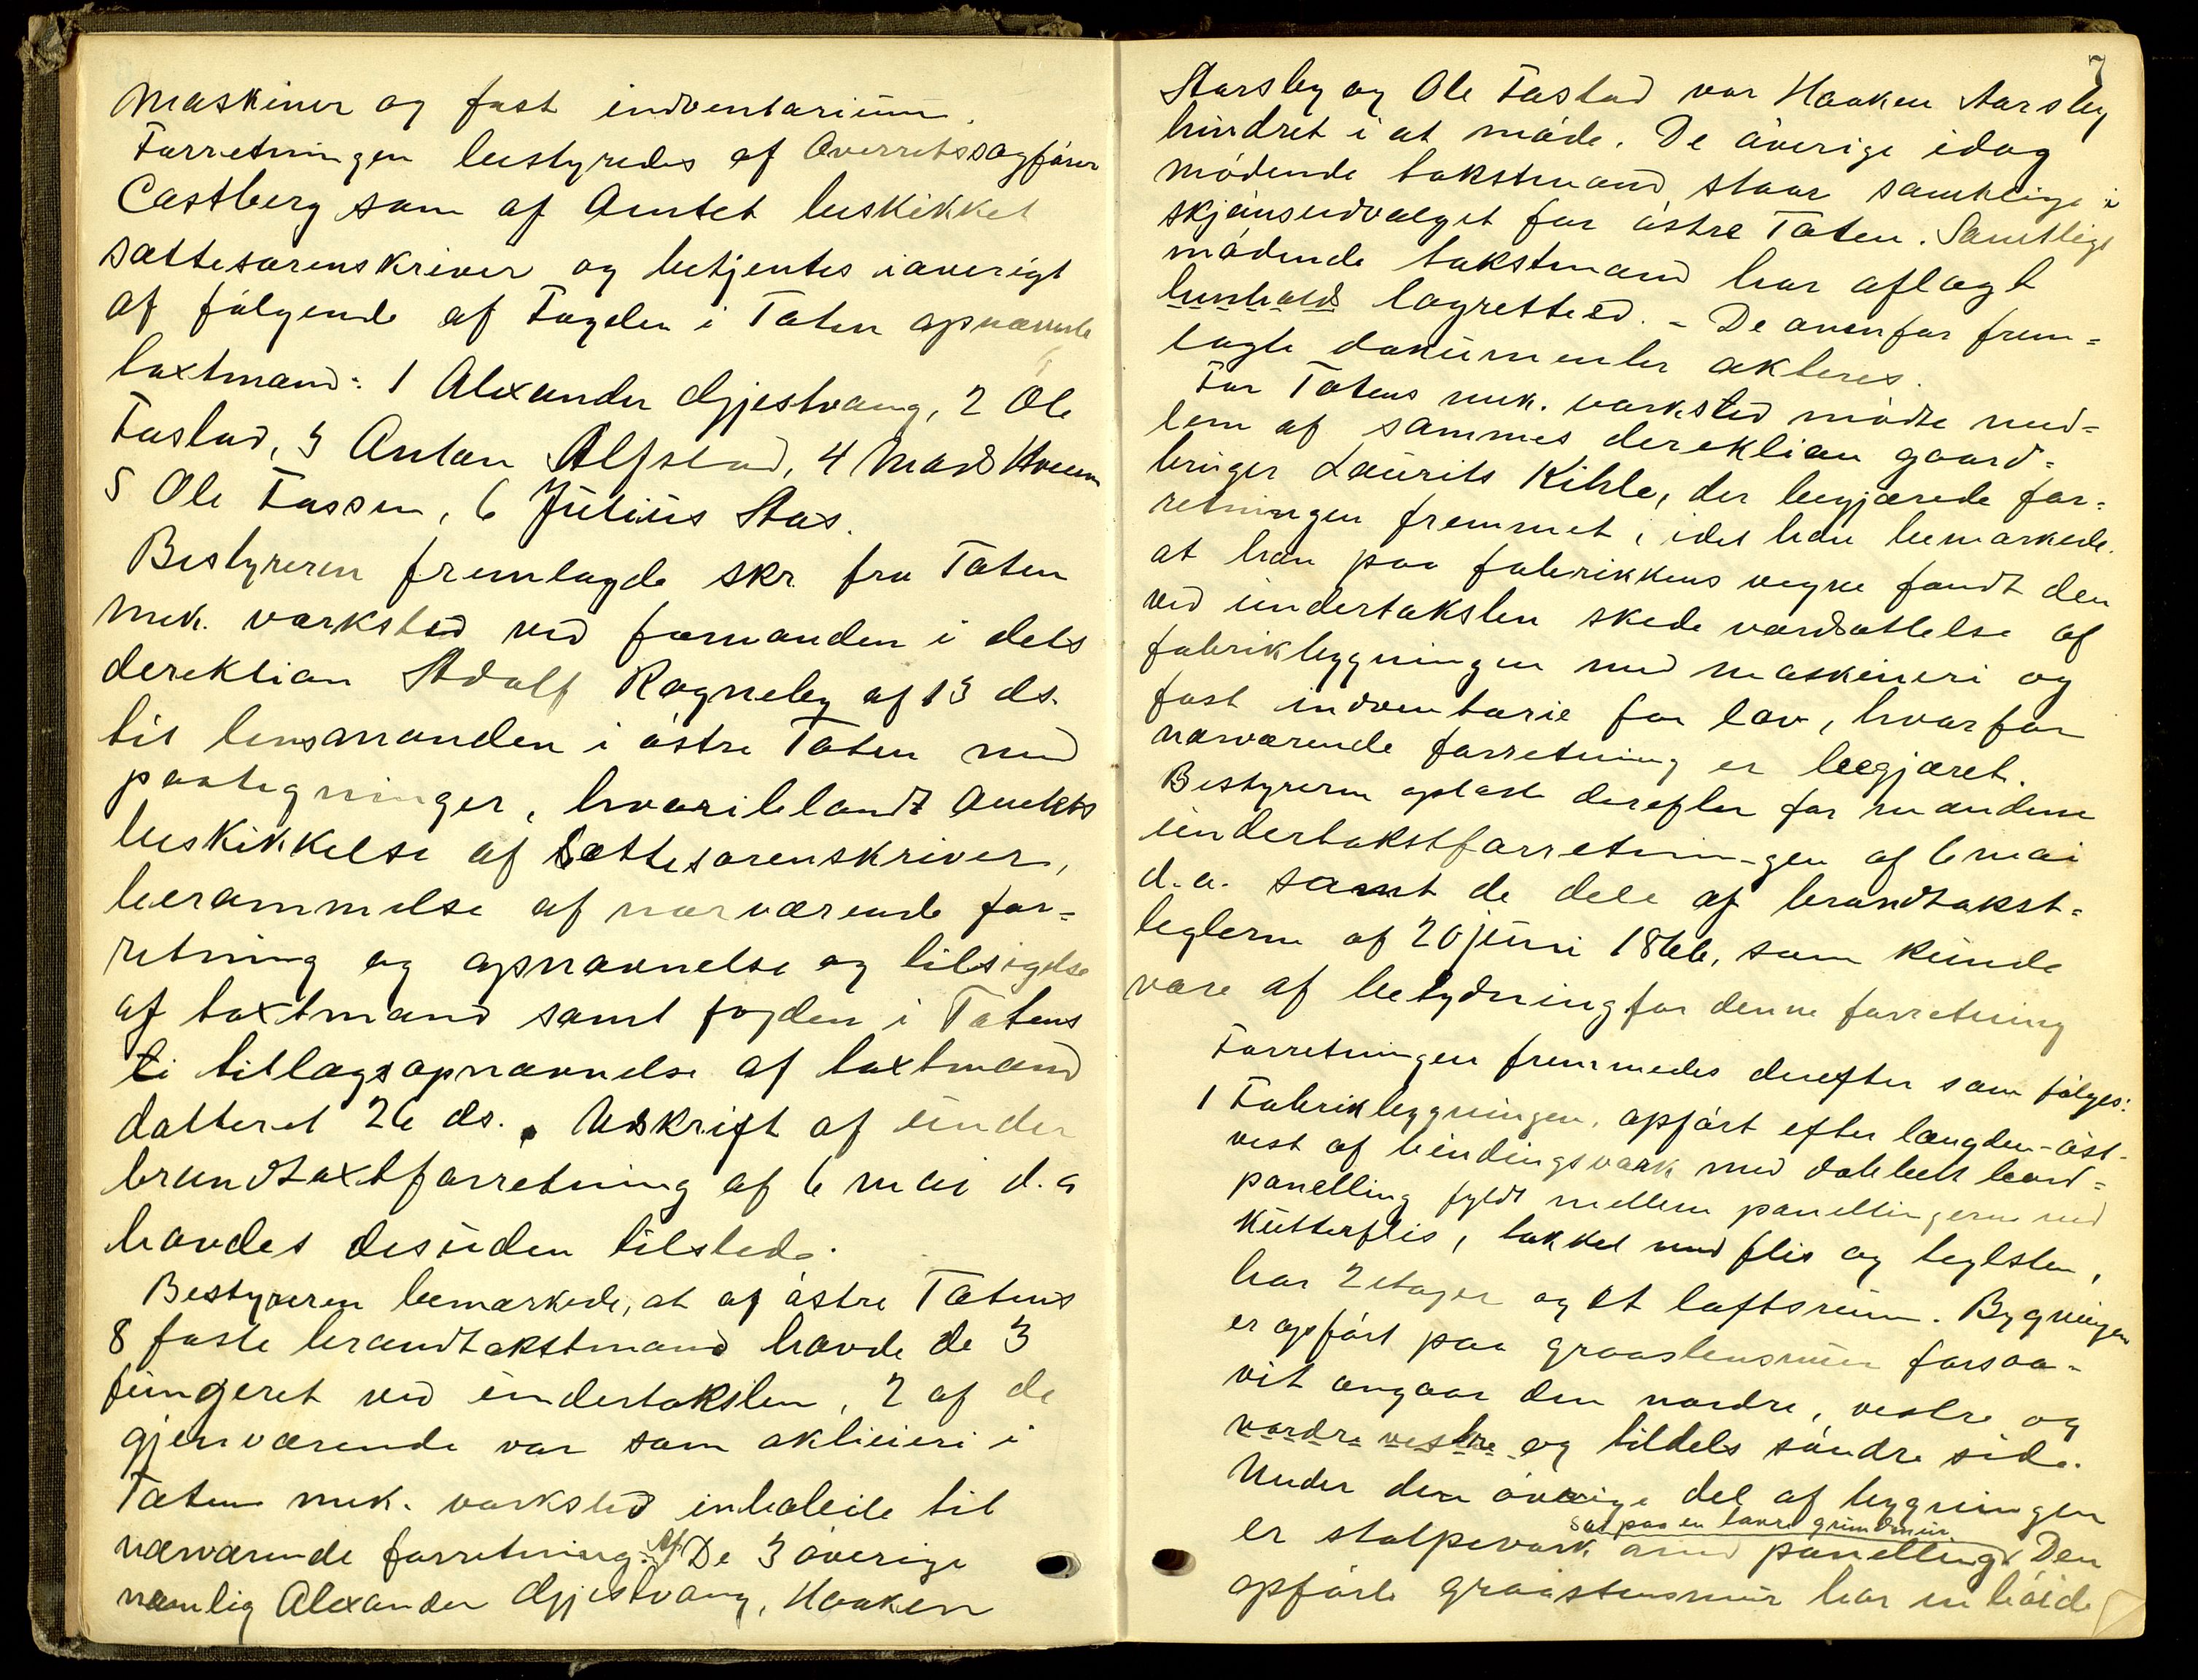 Maskiner og fast indventarium.
Forretningen bestyredes af Overretssagfører
Castberg som af Amtet beskikket
sættesorenskriver og betjentes iøverigt
af følgende af Fogden i Toten opnævnte
taxtmænd: 1 Alexander Gjestvang, 2 Ole
Fastad, 3 Anton Alfstad, 4 Mads Hveem
5 Ole Fossen, 6 Julius Aas.
Bestyreren fremlagde skr. fra Toten
mek. værksted ved formanden i dets
derektion Adolf Rogneby af 13 ds.
til lensmanden i østre Toten med
paategninger, hvoriblandt Amtets
beskikkelse af Sættesorenskriver,
berammelse af nærværende for=
retning og opnævnelse og tilsigelse
af taxtmænd samt fogden i Totens
ti tillægsopnævnelse af taxtmænd
datteret 26 ds. Udskrift af under
brandtaxtforretning af 6 mai d.a
havdes desuden tilstede.
Bestyreren bemærkede, at af østre Totens
8 faste brandtakstmænd havde de 3
fungeret ved undertaksten, 2 af de
gjenværende var som aktieieri i
Toten mek. værksted inhabile til
nærværende forretning. Af De 3 øverige
nemlig Alexander Gjestvang, Haaken
7
Aarsby og Ole Fastad var Haaken Aarsby
hindret i at møde. De øverige idag
mødende takstmænd staar samtlige i
skjønsudvalget for østre Toten. Samtlige
mødende takstmænd har aflagt
henhold lagretteed. - De ovenfor frem=
lagte dokumenter akteres.
For Totens mek. værksted mødte med=
lem af sammes derektion gaard=
bruger Laurits Kihle, der begjærede for=
retningen fremmet, idet han bemærkede
at han paa fabrikkens vegne fandt den
ved undertaksten skede værdsættelse af
fabrikbygningen med maskineri og
fast indventarie for lav, hvorfor
nærværende forretning er begjæret.
Bestyreren oplæste derefter for mændene
undertakstforretningen af 6 mai
d.a. samt de dele af brandtakst=
reglerne af 20 juni 1866, som kunde
være af betydning for denne forretning
Forretningen fremmedes derefter som følges:
1 Fabrikbygningen, opført efter længden-øst-
vest af bindingsværk med dobbelt bord=
panelling fyldt mellem panellingerne med
Kutterflis, takket med flis og teglsten,
har 2 etager og et loftsrum. Bygningen
er opført paa graastensmur forsaa-
vit angaar den nordre, vestre og
nordre vestre og tildels søndre side.
Under den øverige del af bygningen
sat paa en lavere grundmur
er stolpeværk med panelling. Den
opførte graastensmur har en høide